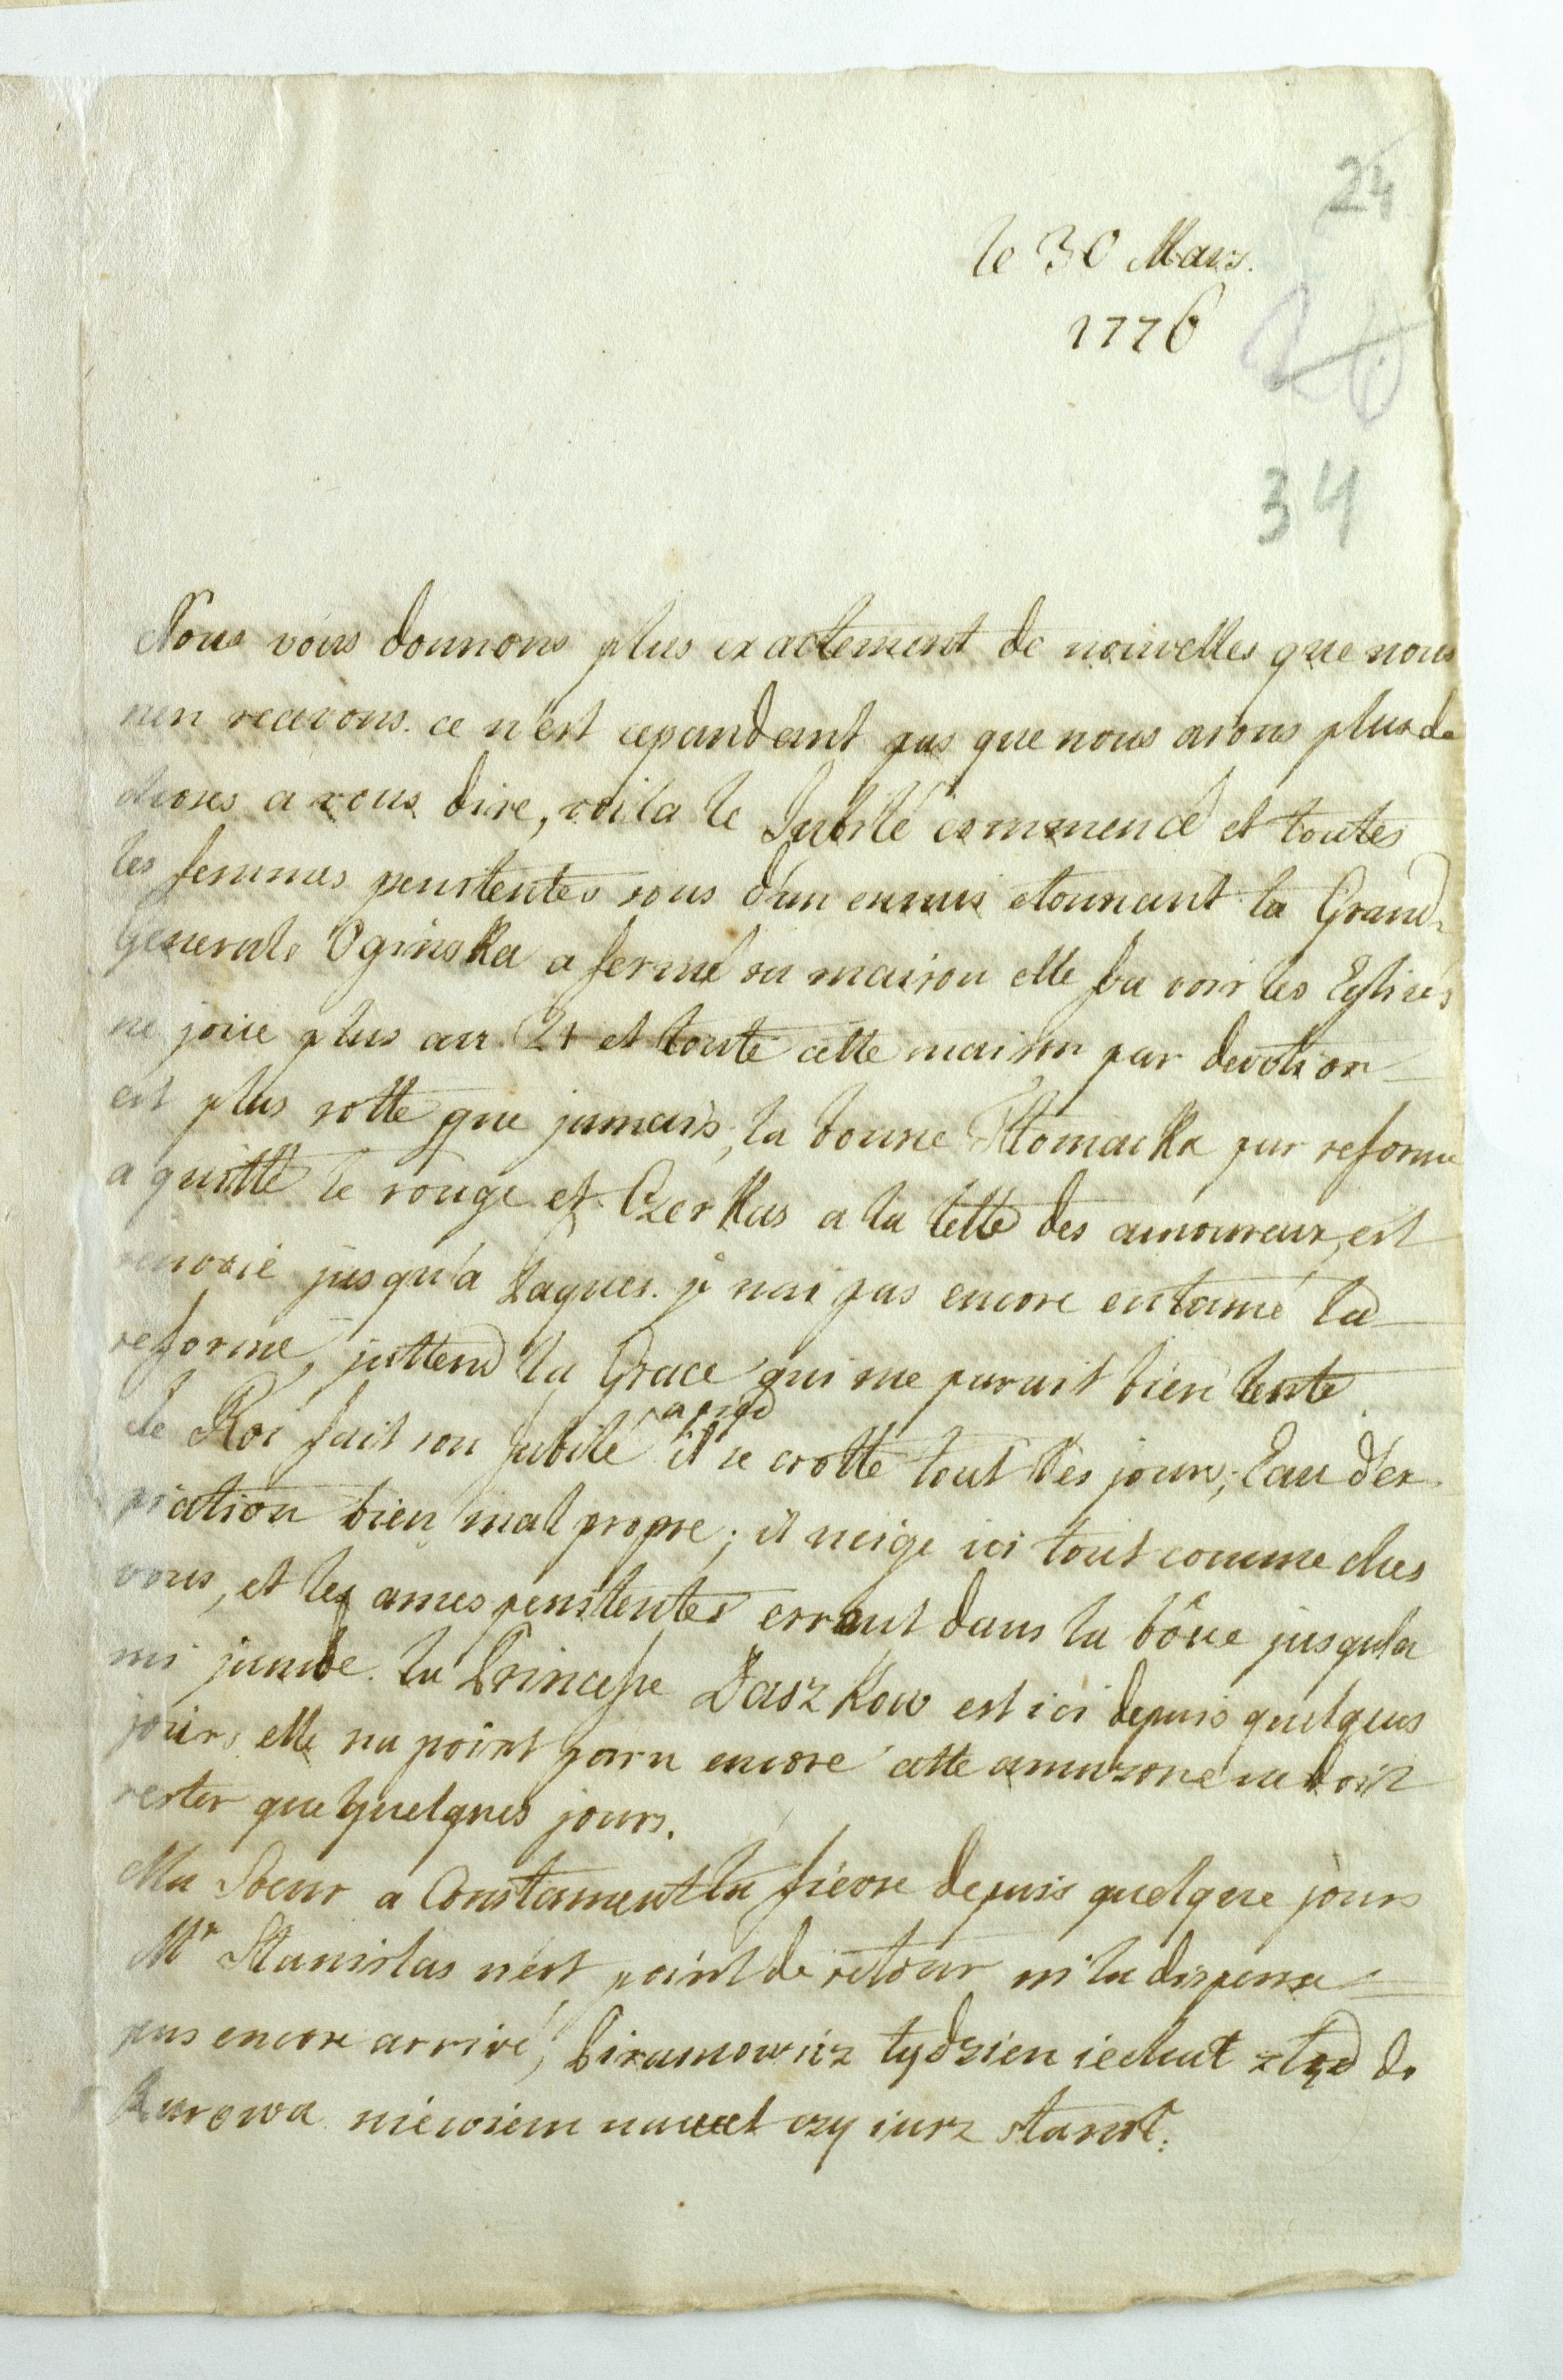 24
le 30 Mars.
1776
26
34
Nous vous donnons plus exactement de nouvelles que nous
nen recevons. ce n'est cepandant pas que nous aions plus de
choses a vous dire, voila le Jubilé commencé et toutes
les femmes penitentes sous d'un ennui etonnant la Grand-
Generale Oginska a fermé sa maison elle va voir les Eglises
ne joue plus au 21 et toute cette maison par devotion
est plus sotte que jamais, la bonne Tłomacka par reforme
a quitté le rouge et Czerkas a la tette des amoureux, est
renvoié jusqu'a Paques. je nai pas encore entamé la
reforme, j'attend la Grace qui me parait bien lente
le Roi fait son Jubilé a pied il se crotte tout les jours, Eau d'ex
piation bien mal propre; il neige ici tout comme ches
vous, et les ames penitentes errent dans la bôue jusqu'a
mi jambe. la Princesse Daszkow est ici depuis quelques
jours elle na point paru encore cette amazone ne doit
rester que quelques jours.
Ma Soeur a Constament la fiévre depuis quelque jours
Mr Stanislas n'est point de retour ni la dispense
pas encore arrivé, Piramowicz tydzien iechał ztąd do
Kurowa niewiem nawet czy iurz stanoł.